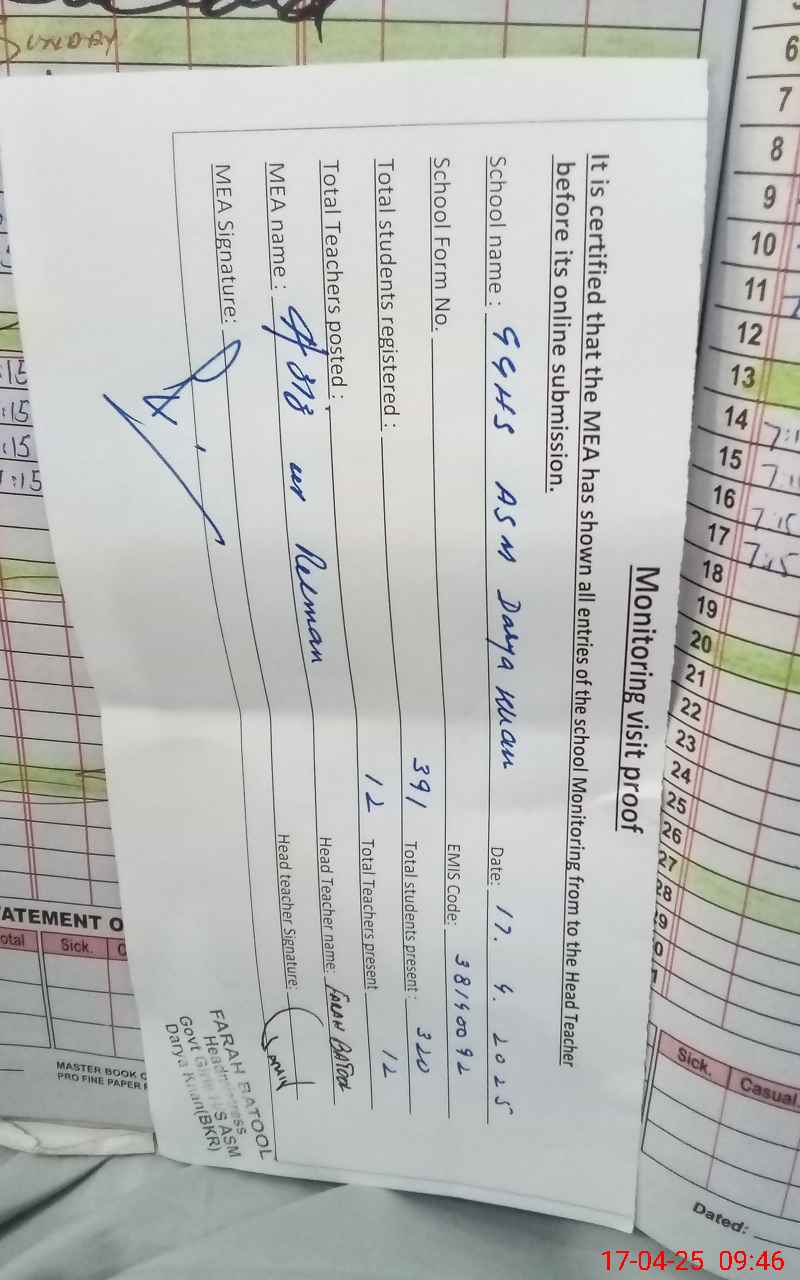 Monitoring visit proof
It is certified that the MEA has shown all entries of the school Monitoring from to the Head Teacher
before its online submission.
School name : GGHS ASM Darya Khan Date: 17. 4. 2025
School Form No. EMIS Code: 38140092
Total students registered : 391 Total students present : 320
Total Teachers posted : 12 Total Teachers present 12
MEA name : ur Rehman Head Teacher name: FARAH BATOOL
MEA Signature: Head teacher Signature:
FARAH BATOOL
Headmistress
Govt Girls H/S ASM
Darya Khan(BKR)
SUNDAY
:15
:15
:15
7:15
6
7
8
9
10
11
12
13
14
15
16 7:15
17 7:15
18
19
20
21
22
23
24
25
26
27
28
ATEMENT O
otal Sick. C
MASTER BOOK C
PRO FINE PAPER
Sick. Casual
Dated:
17-04-25 09:46